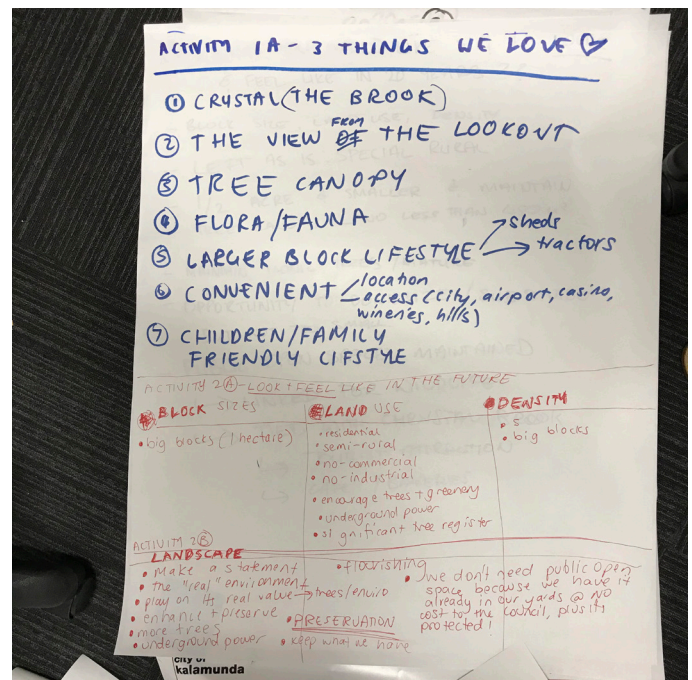 ACTIVITY 1A - 3 THINGS WE LOVE
① CRYSTAL (THE BROOK)
② THE VIEW OF FROM THE LOOKOUT
③ TREE CANOPY
④ FLORA/FAUNA
⑤ LARGER BLOCK LIFESTYLE → sheds
→ tractors
⑥ CONVENIENT < location
access (city, airport, casino,
wineries, hills)
⑦ CHILDREN/FAMILY
FRIENDLY LIFSTYLE
ACTIVITY 2Ⓐ - LOOK + FEEL LIKE IN THE FUTURE
BLOCK SIZES
• big blocks (1 hectare)
LAND USE
• residential
• semi-rural
• no-commercial
• no-industrial
• encourage trees + greenery
• underground power
• significant tree register
DENSITY
• S
• big blocks
ACTIVITY 2Ⓑ
LANDSCAPE
• Make a statement
• the "real" environment
• play on its real value → trees/enviro
• enhance + preserve
• more trees
• underground power
• flourishing
• PRESERVATION
• keep what we have
• we don't need public open
space because we have it
already in our yards @ NO
cost to the council, plus its
protected!
city of
kalamunda